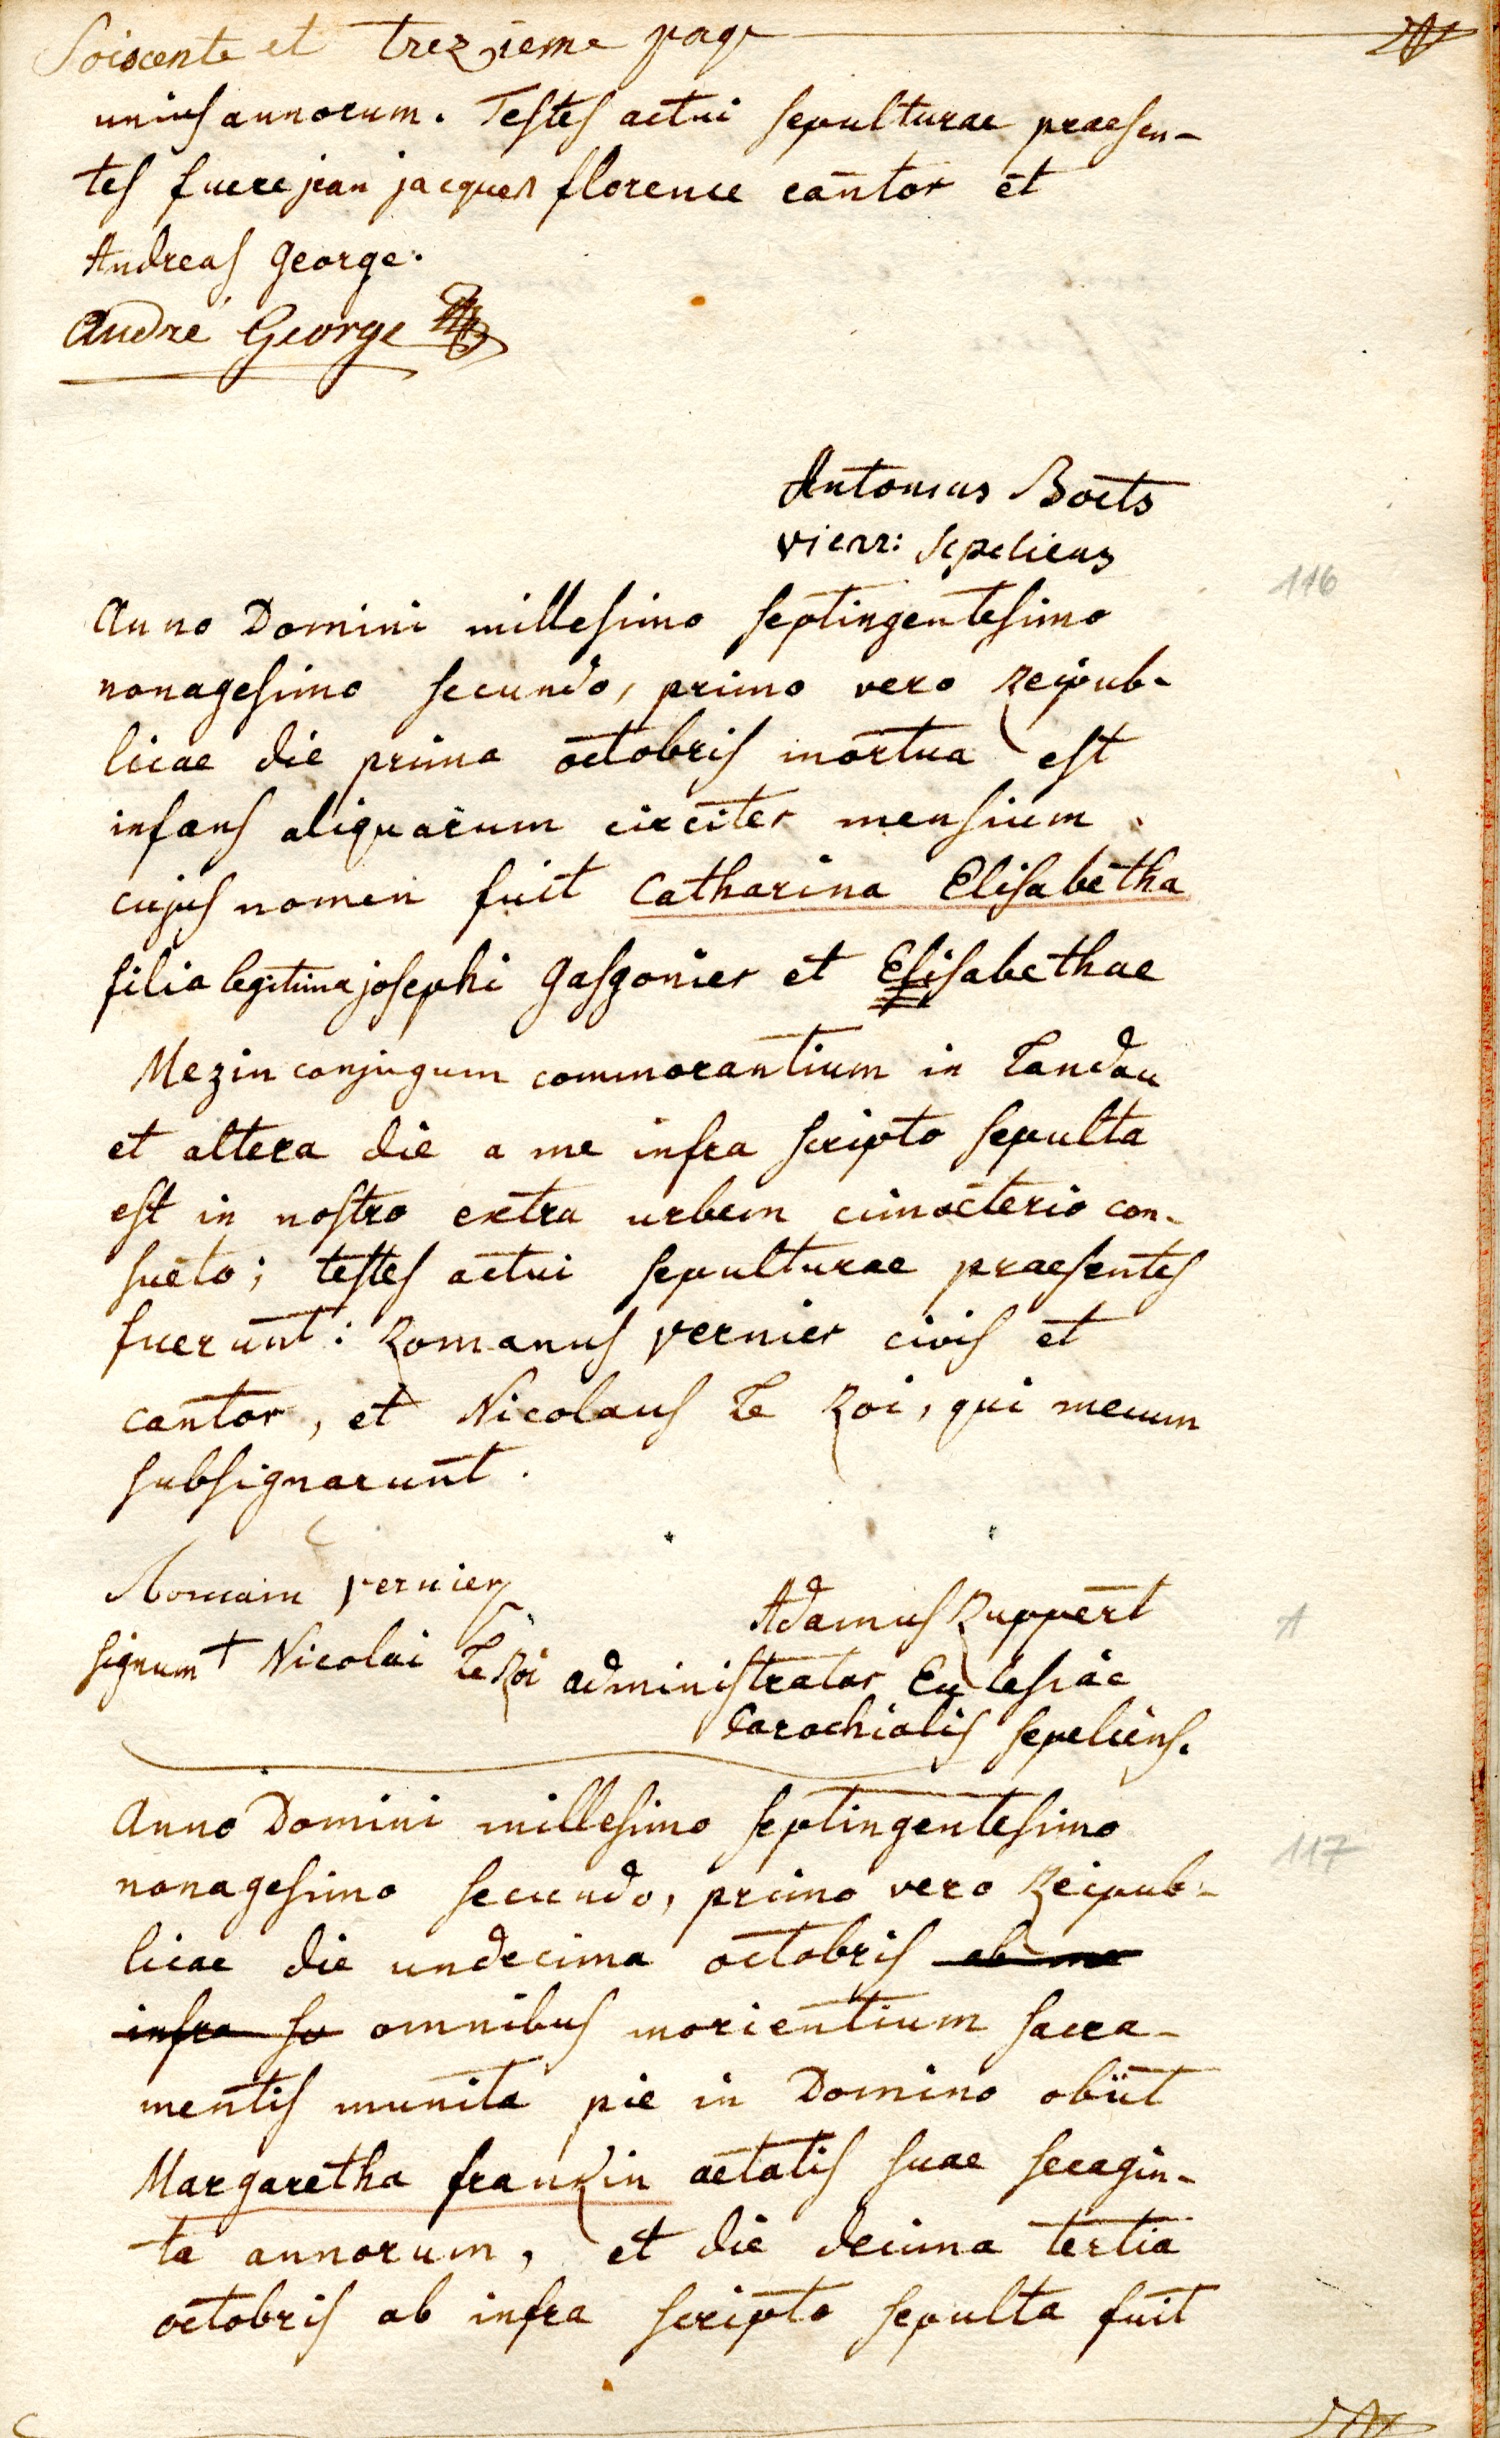 Soiscente et trezieme page
unius annorum. Testes actui sepulturae praesen-
tes fuere jean jacques florence cantor et
Andreas George.
André George
Antonius Boets
vicar: sepeliens
116
Anno Domini millesimo septingentesimo
nonagesimo secundo, primo vero Reipub-
licae die prima octobris mortua est
infans aliquarum circiter mensium.
cujus nomen fuit Catharina Elisabetha
filia legitima josephi Gasgonier et Elisabethae
Mezin conjugum commorantium in Landau
et altera die a me infra scripto sepulta
est in nostro extra urbem cimoeterio con-
sueto; testes actui sepulturae praesentes
fuerunt: Romanus Vernier civis et
cantor, et Nicolaus Le Roi, qui mecum
subsignarunt.
Romain Vernier
Adamus Ruppert
signum + Nicolai Le Roi administrator Ecclesiae
parochialis sepeliens.
Anno Domini millesimo septingentesimo
117
nonagesimo secundo, primo vero Reipub-
licae die undecima octobris ab me
infra sc omnibus morientium sacra-
mentis munita pie in Domino obiit
Margaretha frankin aetatis suae sexagin-
ta annorum, et die decima tertia
octobris ab infra scripto sepulta fuit